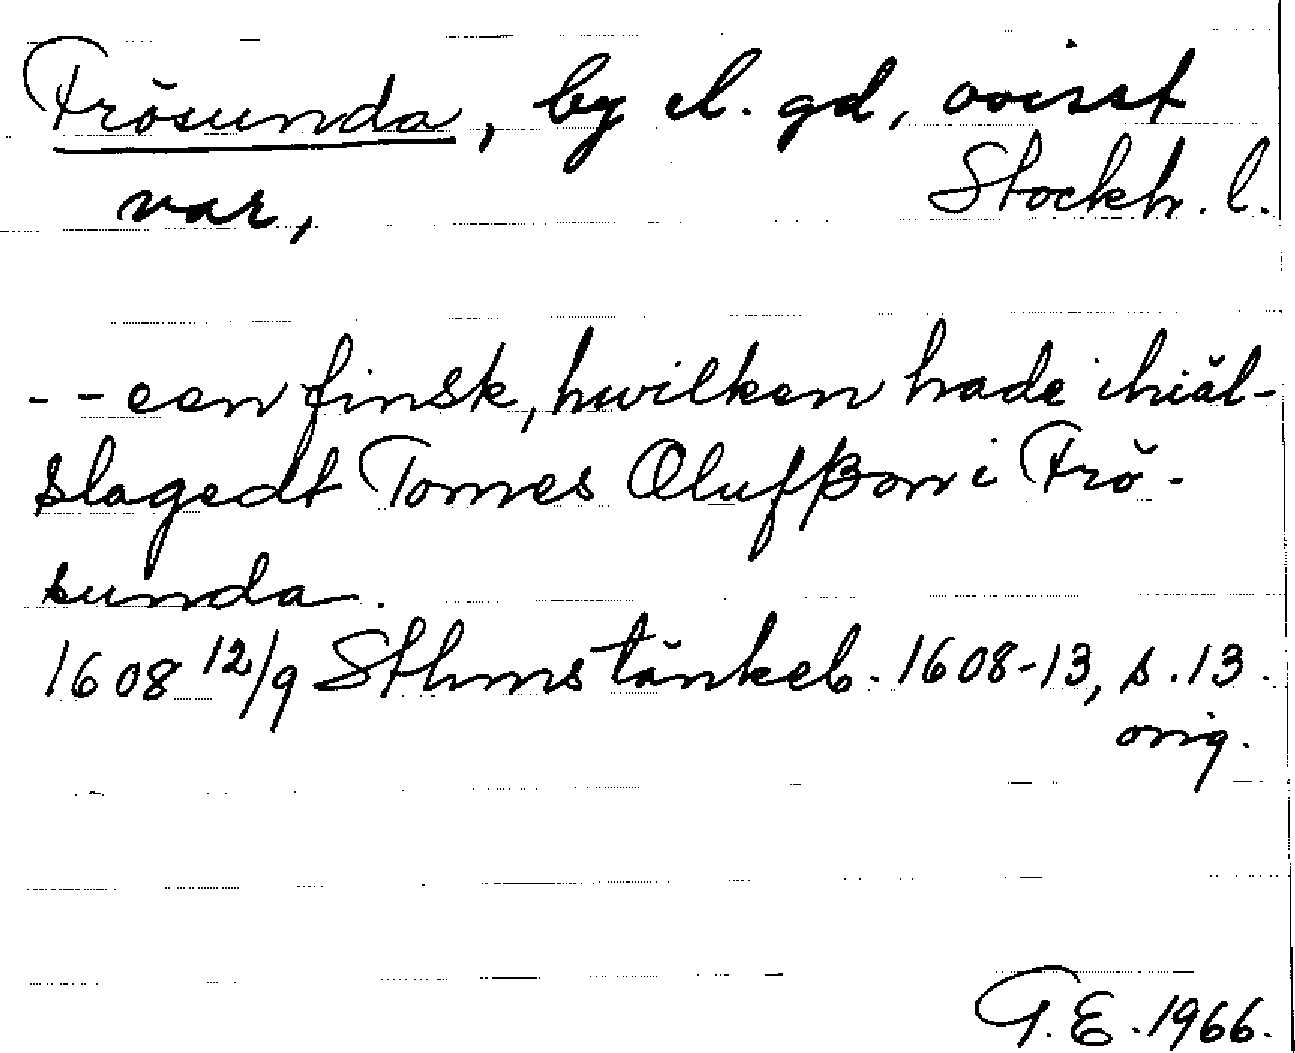 Frösunda, by el. gd, ovisst
var, Stockh. l.
- - een finsk, hwilken hade ihiäl-
slagedt Tomes Olufßon i Frö-
sunda.
1608 12/9 Sthms tänkeb. 1608-13, s. 13.
orig.
G. E. 1966.